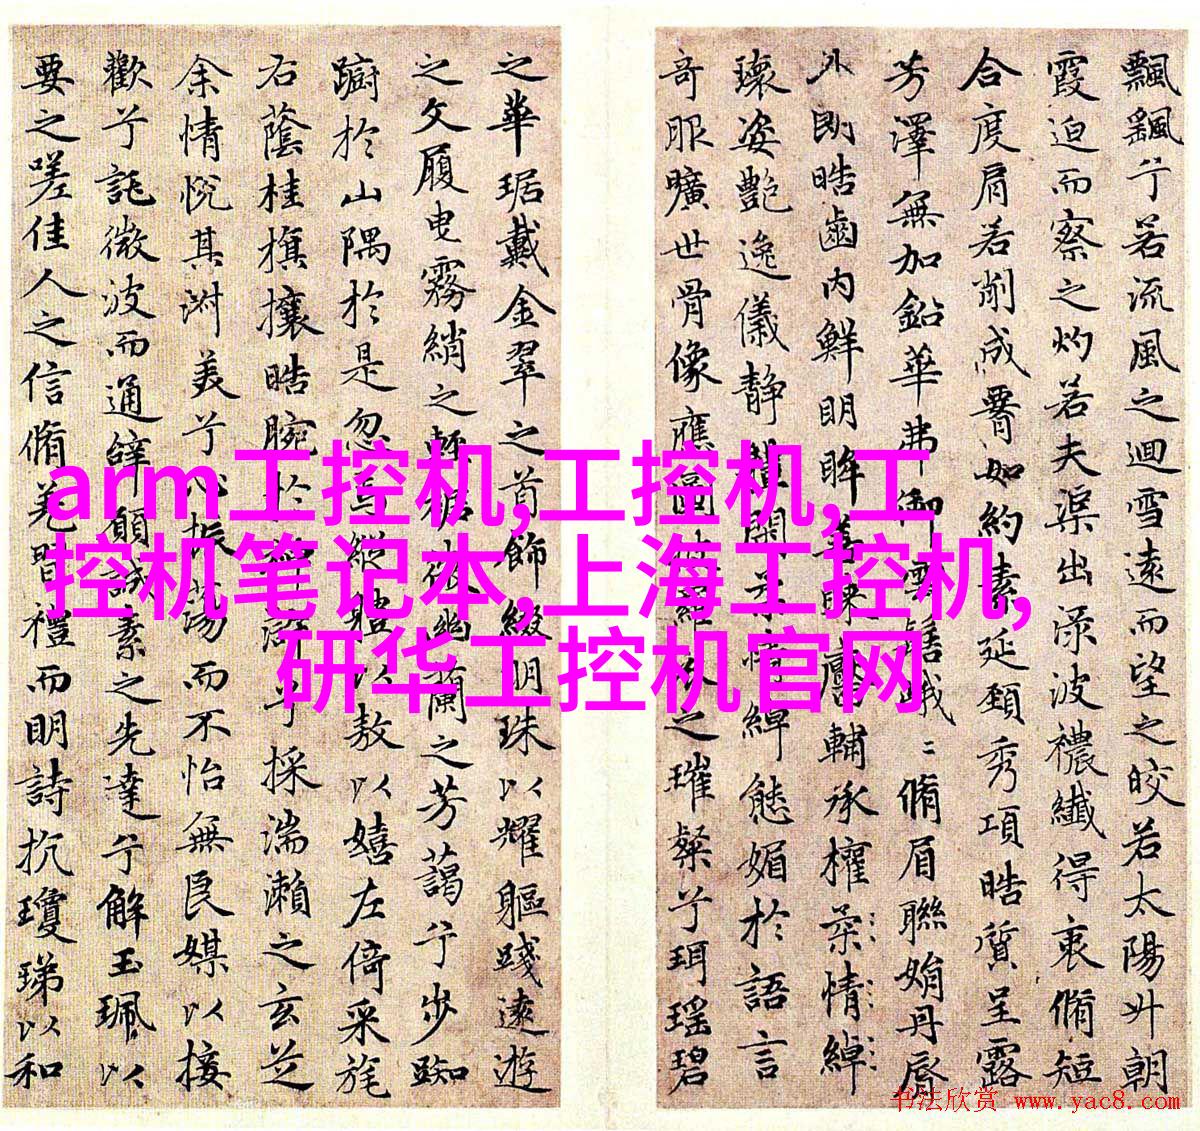 飄飖兮若流風之迴雪遠而望之皎若太陽升朝
霞迫而察之灼若夫渠出淥波襛纖得衷脩短
合度肩若削成䙏如約素延頸秀項皓質呈露
芳澤無加鉛華弗御雲髻峨〻脩眉聯娟丹唇
外朗皓齒内鮮明眸善睞靨輔承權柔情綽
瓌姿艷逸儀靜體閑柔情綽態媚於語言
奇服曠世骨像應圖披羅衣之璀粲兮珥瑤碧
之華琚戴金翠之首飾綴明珠以耀軀踐遠遊
之文履曳霧綃之輕裾微幽蘭之芳藹兮步踟
蹰於山隅於是忽焉縱體以敖以嬉左倚采旄
右蔭桂旗攘皓腕於神滸兮採湍瀨之玄芝
余情悅其淑美兮心振蕩而不怡無良媒以接
歡兮託微波而通辭願誠素之先達兮解玉珮以
要之嗟佳人之信脩羌習禮而明詩抗瓊珶以和
arm工控机,工控机,工
控机笔记本,上海工控机,
研华工控机官网
书法欣赏 www.yac8.com